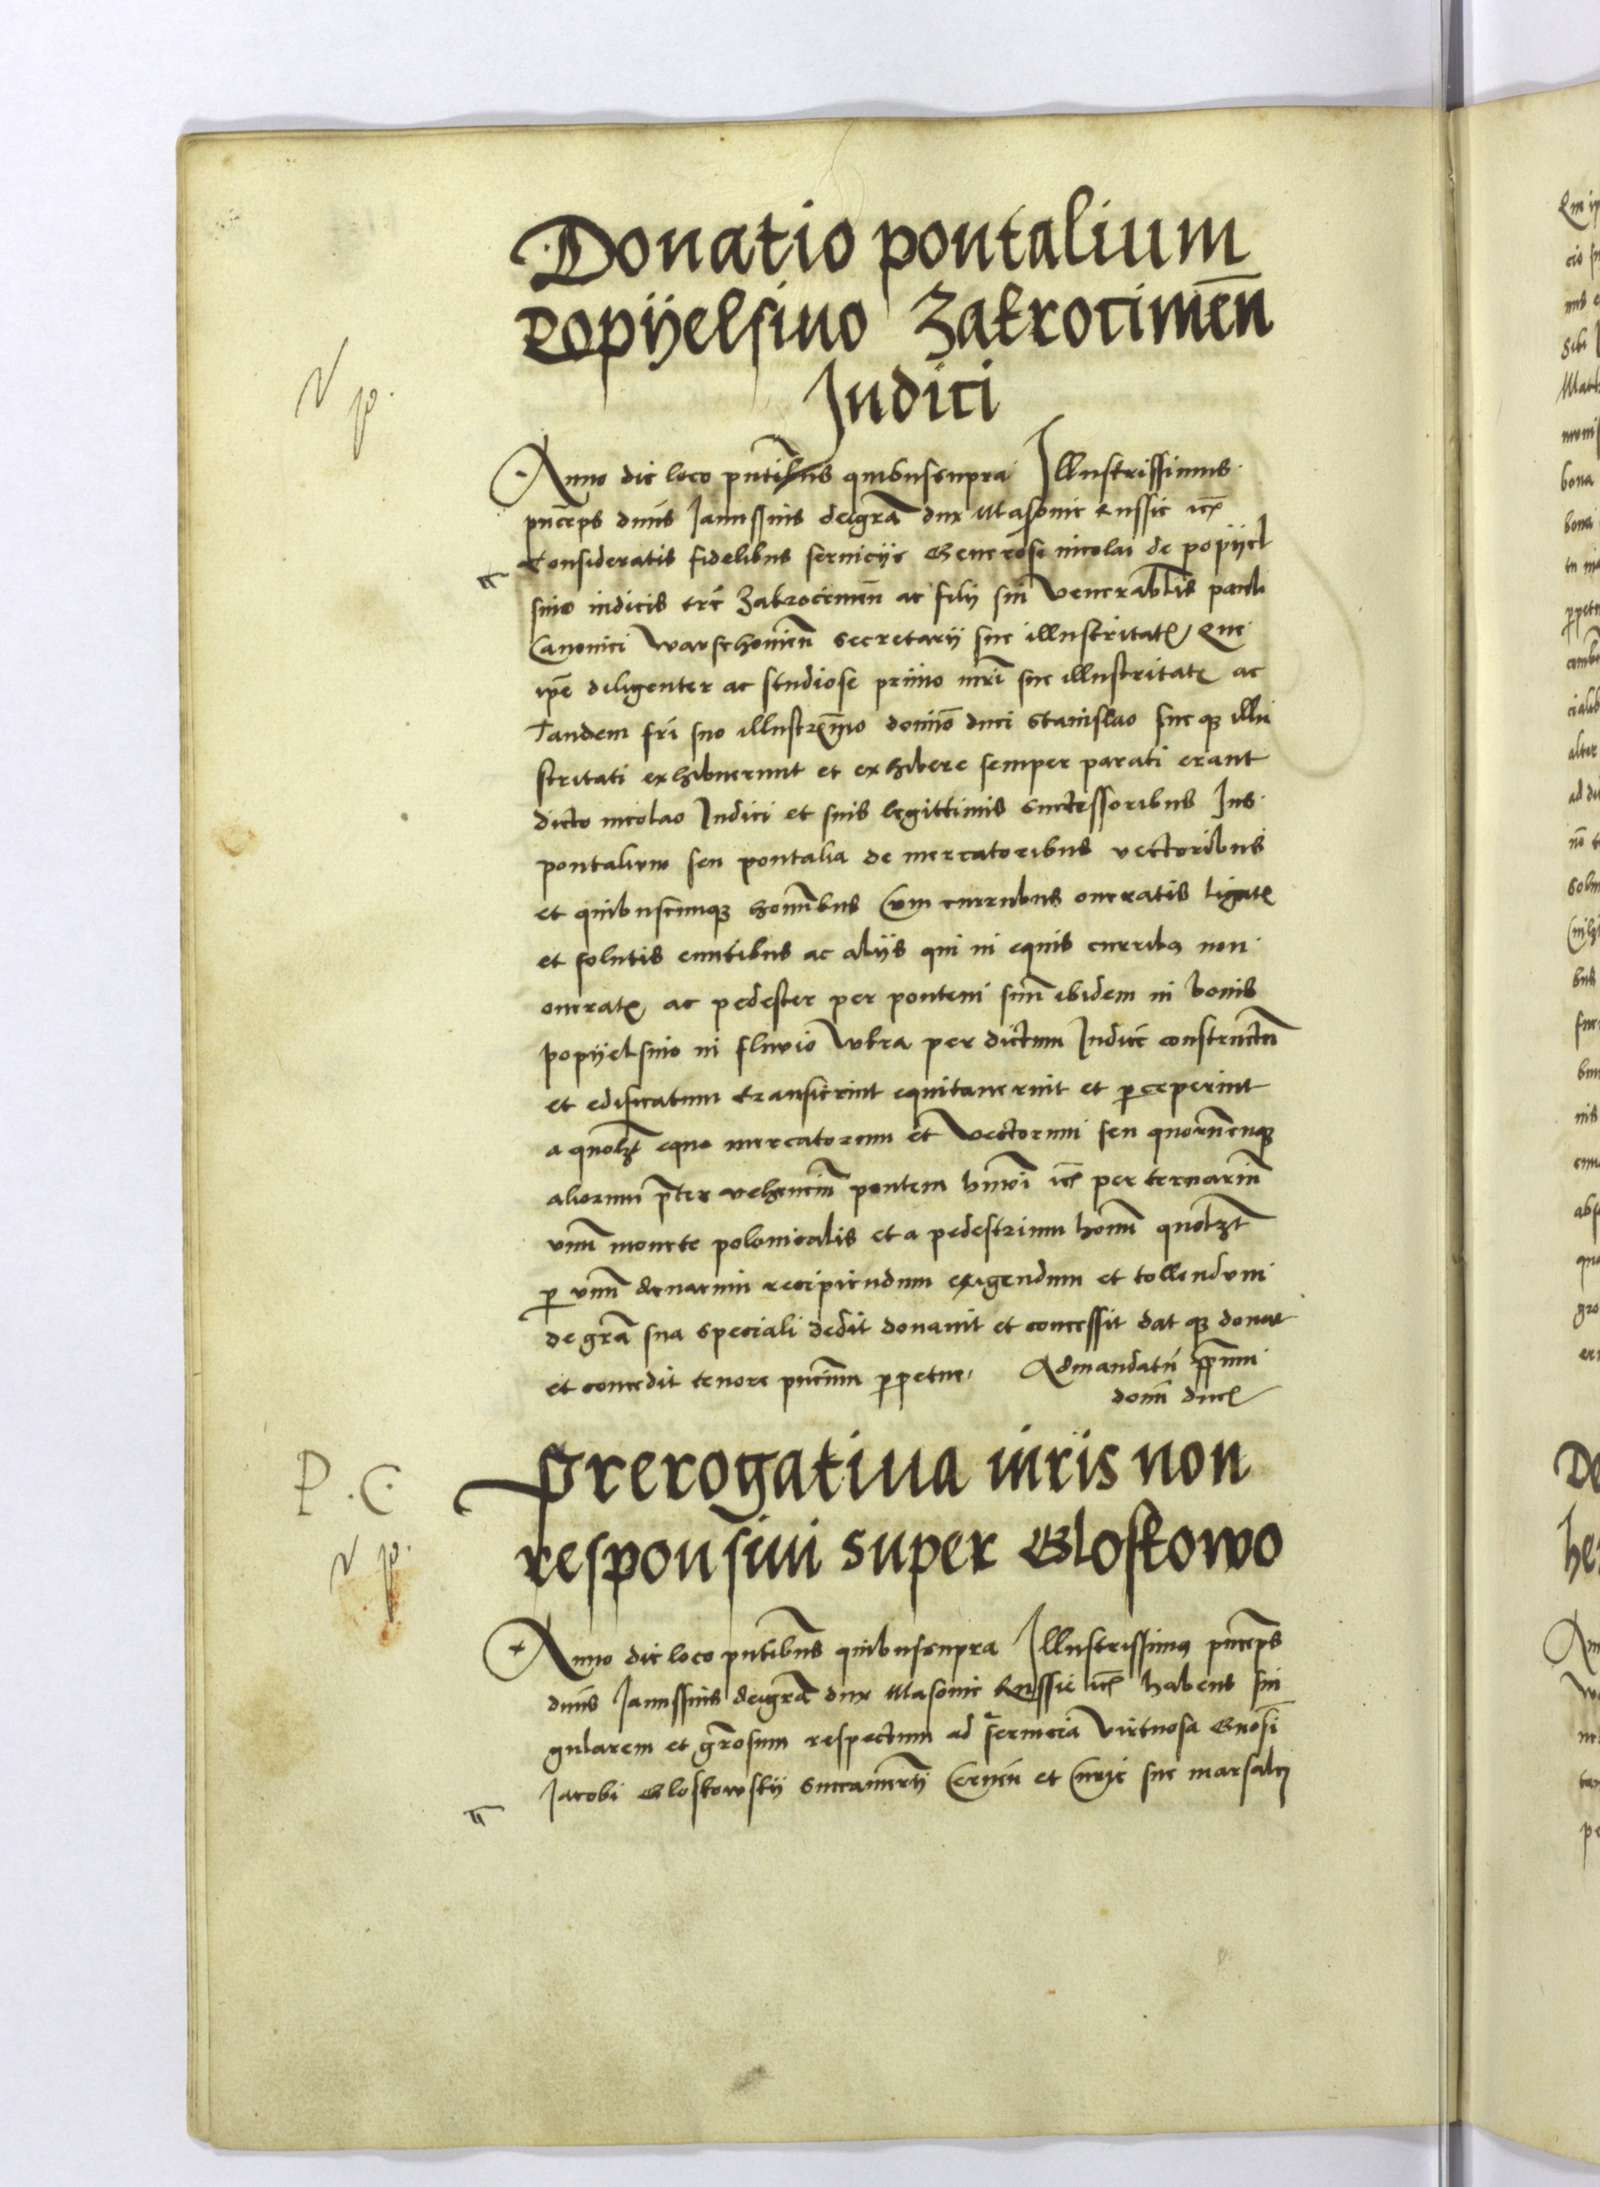 Donatio pontalium
Popyelsino Zakrocimen̄
Judici
N p.
Anno die loco pn̄tibus quibus supra Illustrissimus
pn̄ceps dn̄us Janussius dei gr̄a dux Masovie Russie ꝛc̄
Consideratis fidelibus serviciis Generosi nicolai de popyel
sino iudicis trē Zakrocimen̄ ac filij sui Venerab̄lis pauli
Canonici warschovien̄ secretarij sue illustritatꝭ / Que
ip̄e diligenter ac studiose primo mr̄i sue illustritatꝭ ac
Tandem fr̄i suo illustr̄mo domino duci Stanislao sue qꝫ illu
stritati exhibuerunt et exhibere semper parati erant
dicto nicolao Judici et suis legittimis successoribus Jus
pontalium seu pontalia de mercatoribus vectoribus
et quibuscumqꝫ homībus Cum curribus oneratis ligatꝭ
et solutis euntibus ac aliis qui in equis curribꝰ non
oneratꝭ ac pedester per pontem suū ibidem in bonis
popyelsino in fluvio wkra per dictum Judicē constructū
et edificatum transierint equitaverint et ꝑceperint
a quolꝫt equo mercatorum et Vectorum seu quorūcūqꝫ
aliorum p̄ter vehenciū pontem hmōi ꝛc̄ per ternariū
unū monete polonicalis et a pedestrium homī quolꝫt
ꝑ unū denarium recipiendum exigendum et tollendum
de gr̄a sua speciali dedit donavit et concessit dat qꝫ donat
et concedit tenore pn̄cium ꝑpetue / Ad mandatū ꝓpriū
domī ducꝭ
P. C.
Prerogativa iuris non
responsivi super Gloskowo
N p.
Anno die loco pn̄tibus quibus supra Illustrissimꝰ pn̄ceps
dn̄us Janussius dei gr̄a dux Masovie Russie ꝛc̄ habens sin
gularem et gr̄osum respectum ad servicia virtuosa Gn̄osi
Jacobi Gloskowskij succamerarij Cernen̄ et Curie sue marsalci